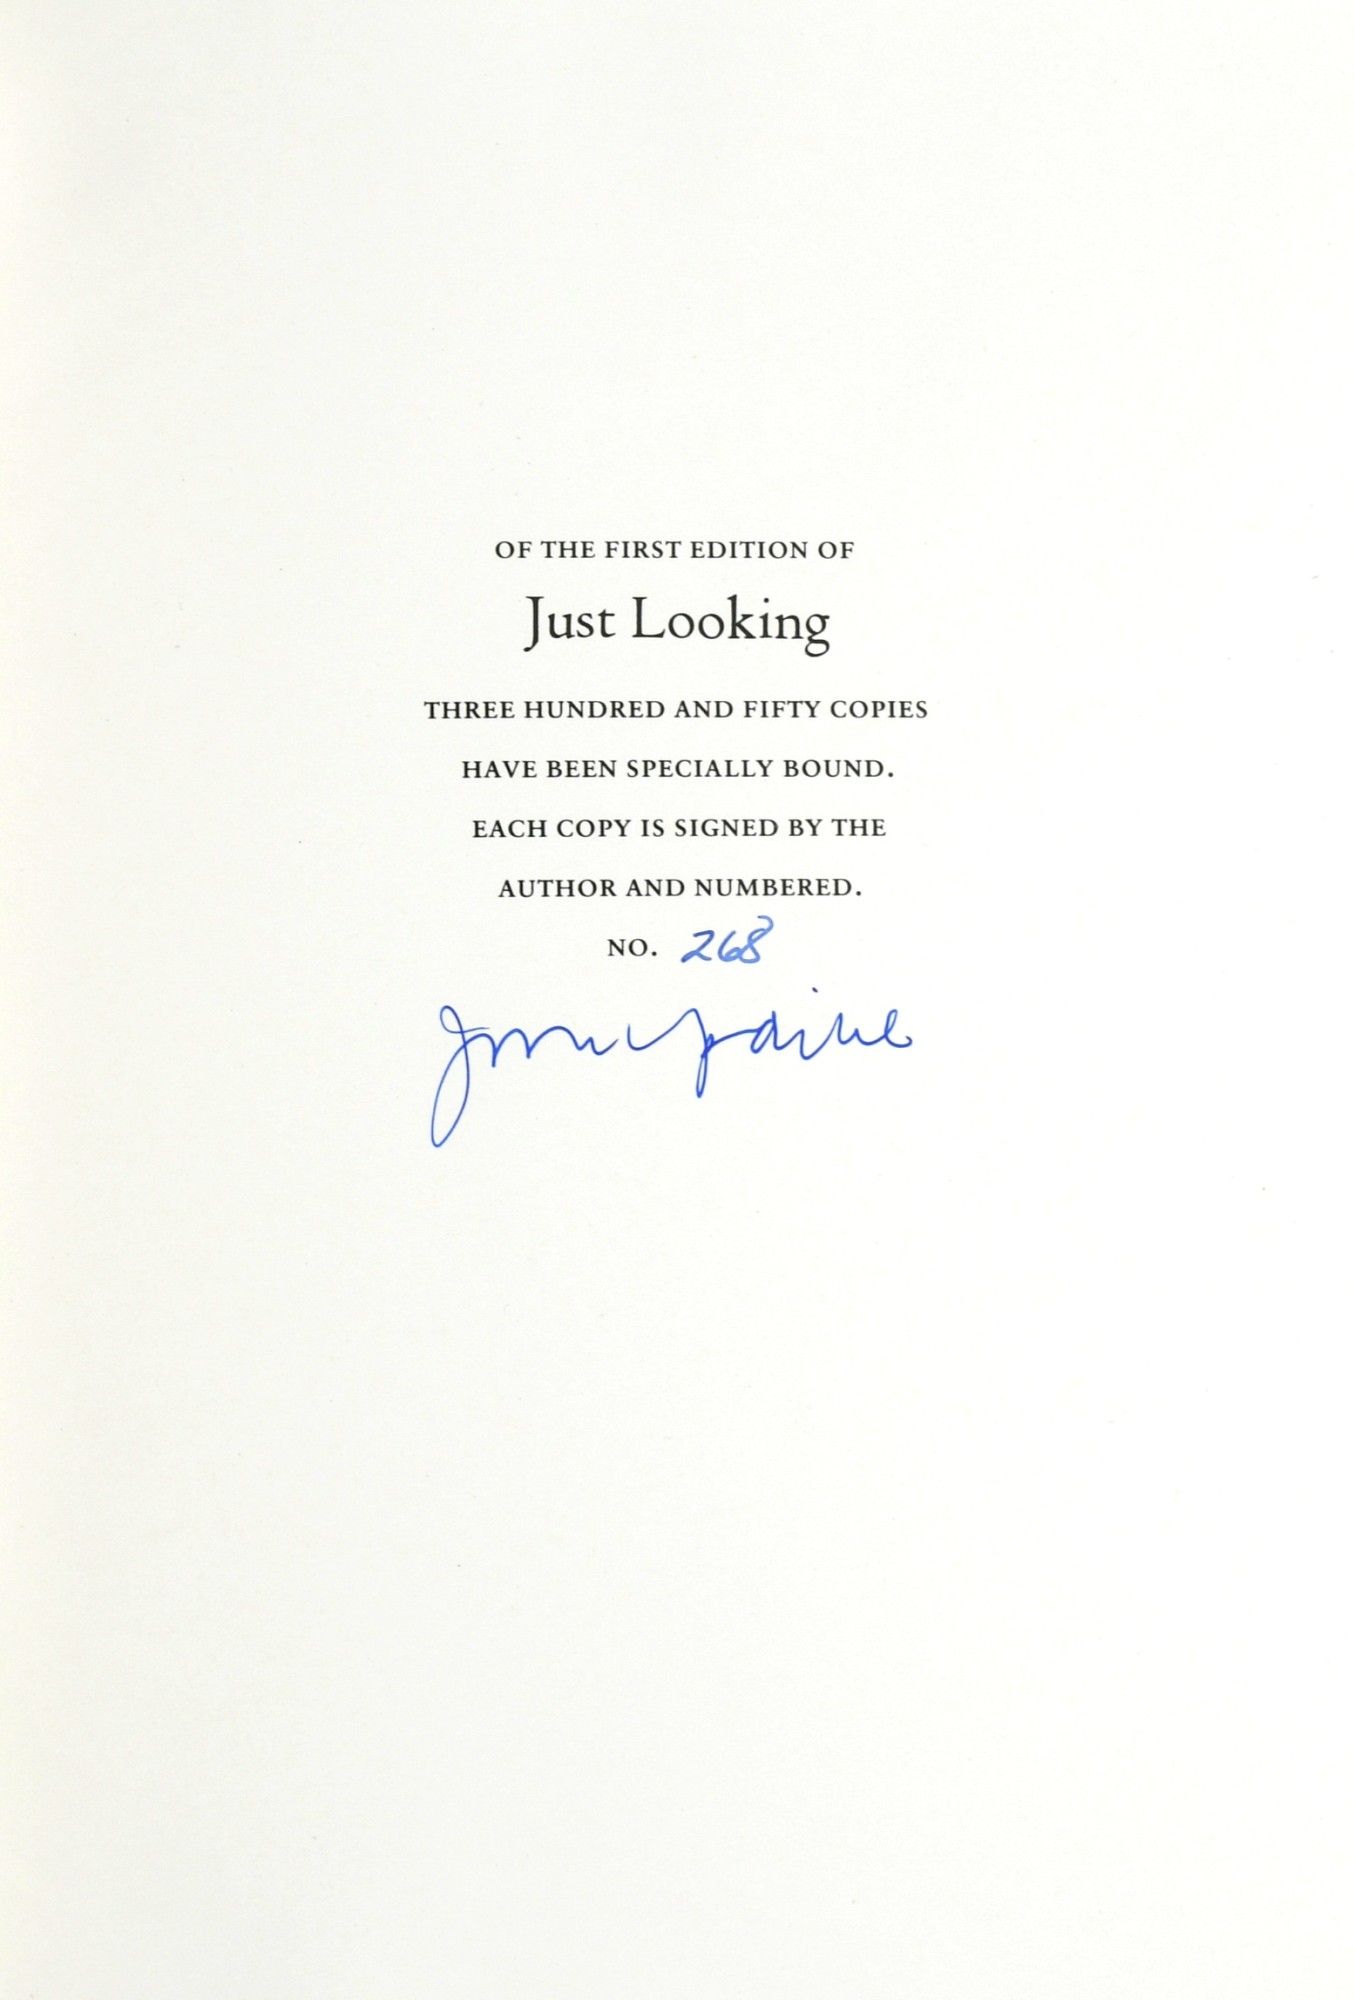 OF THE FIRST EDITION OF
Just Looking
THREE HUNDRED AND FIFTY COPIES
HAVE BEEN SPECIALLY BOUND.
EACH COPY IS SIGNED BY THE
AUTHOR AND NUMBERED.
NO. 268